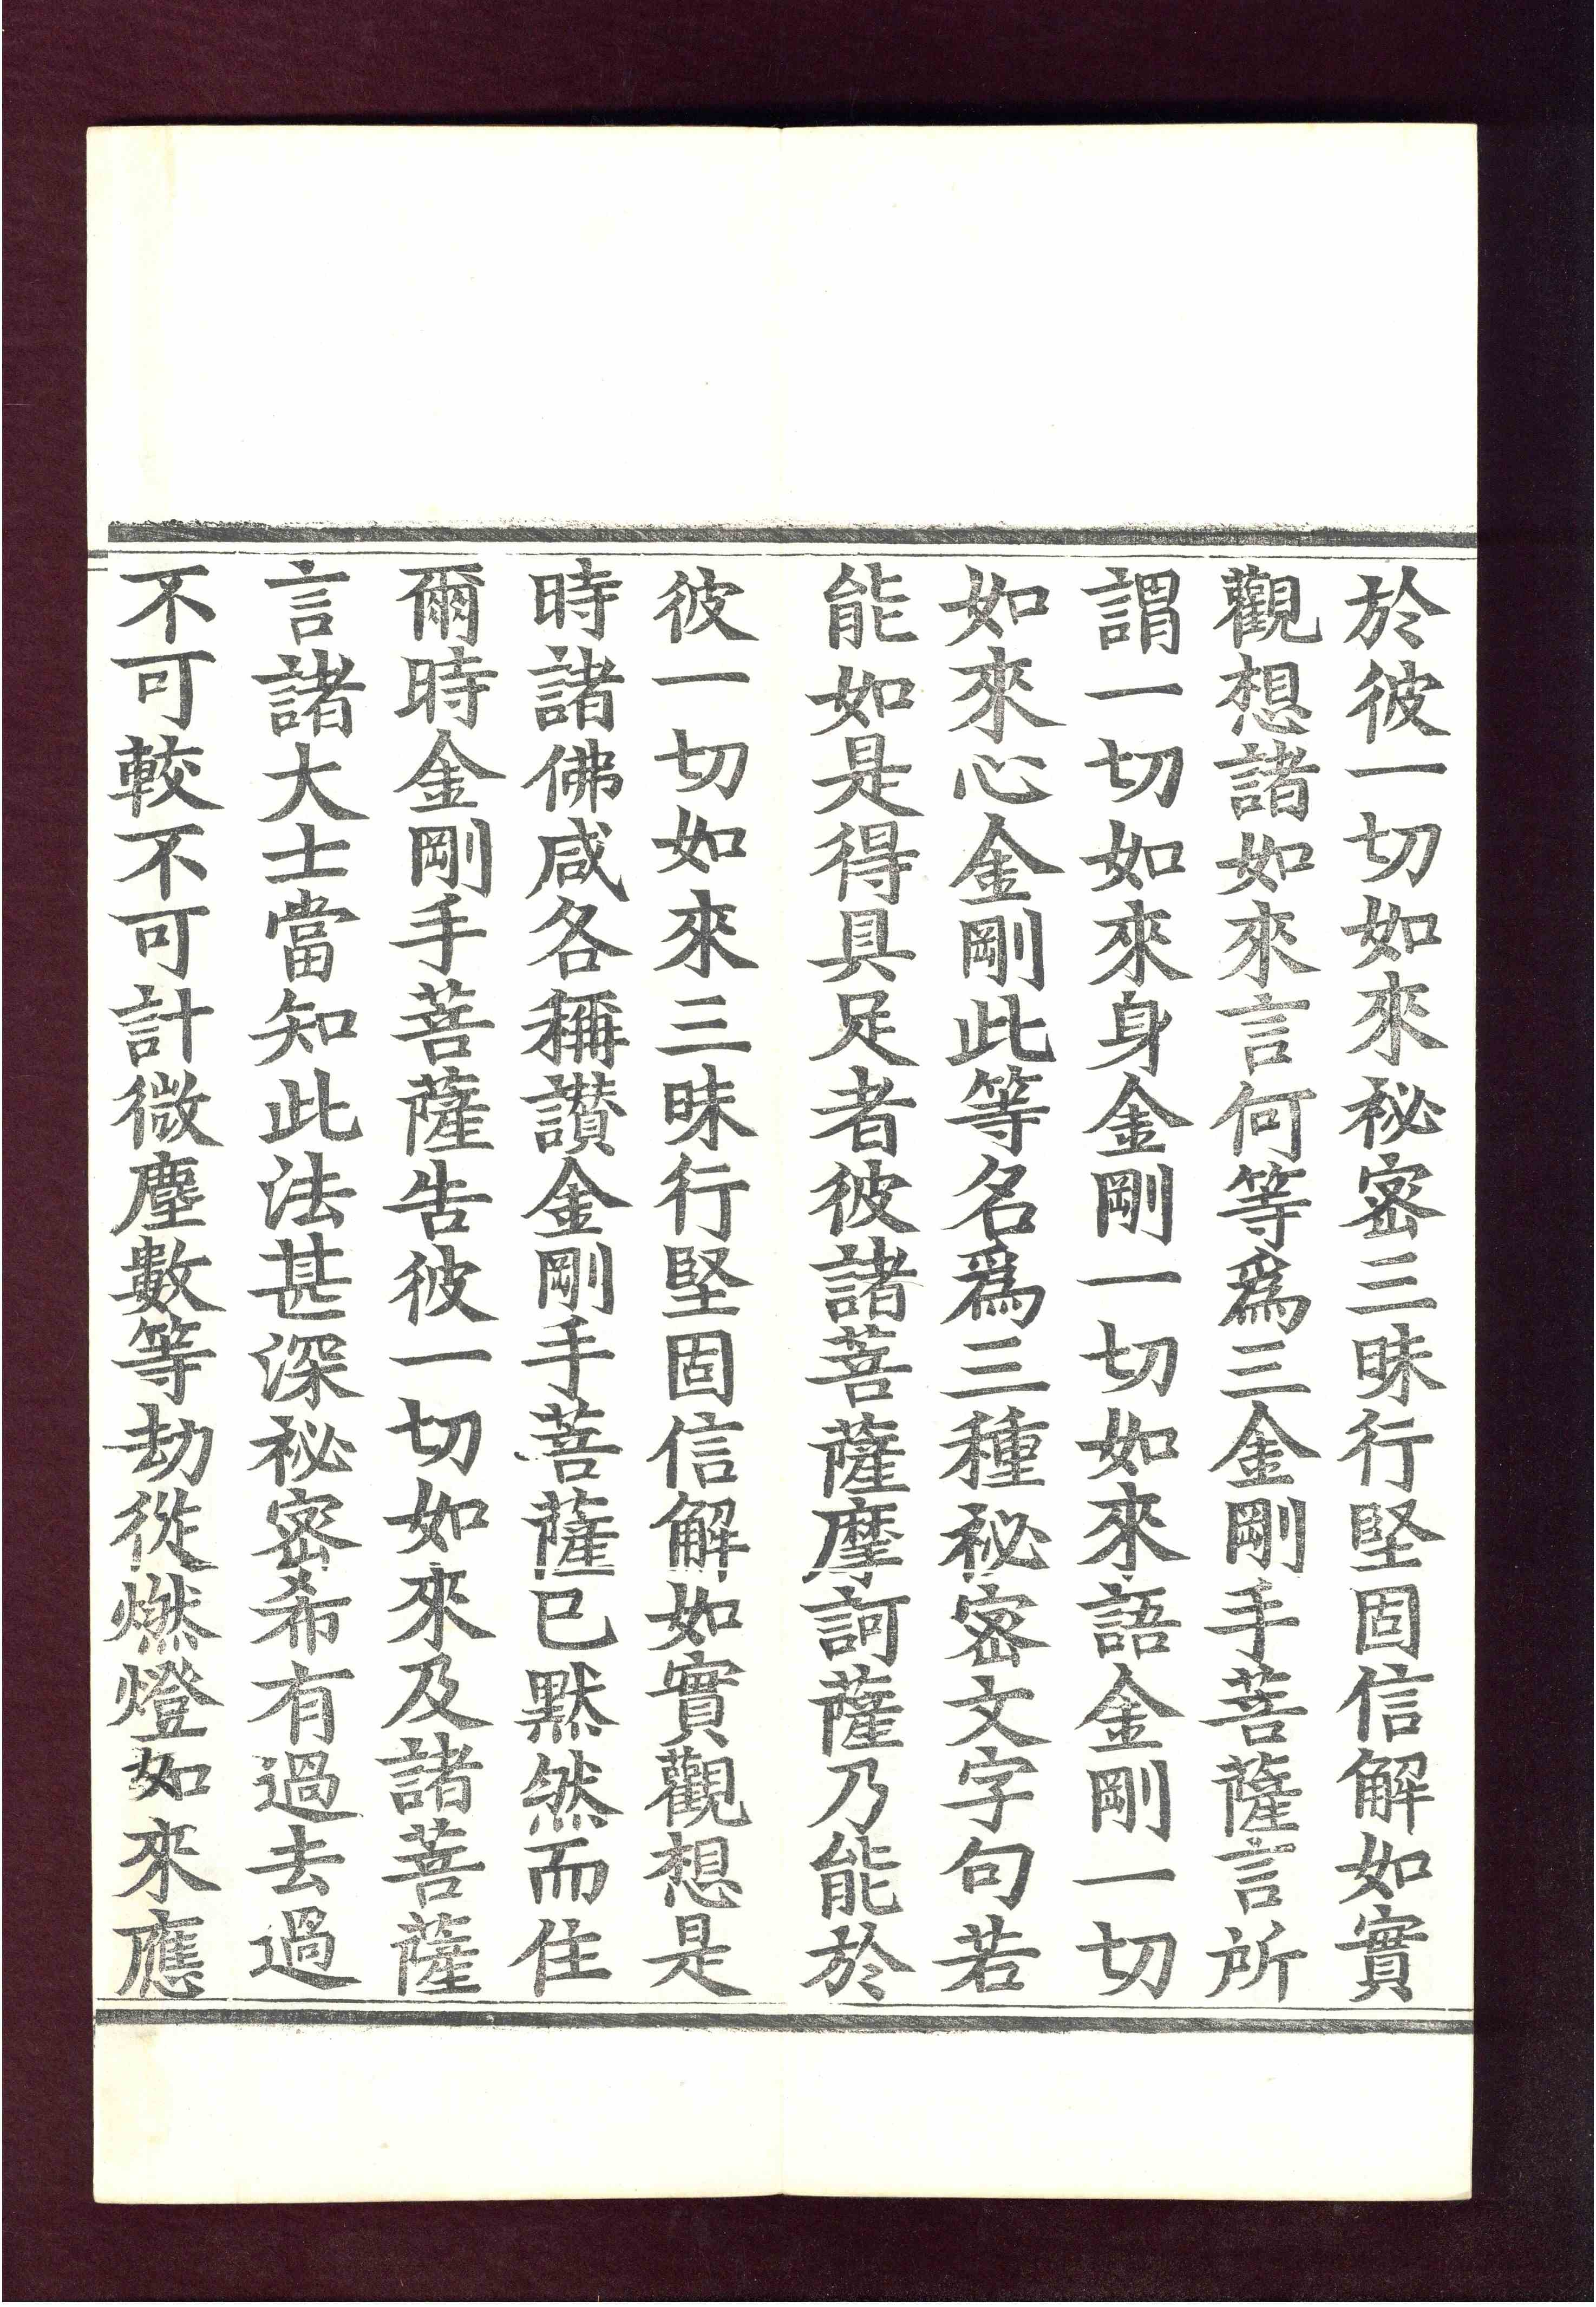 於彼一切如來祕密三昧行堅固信解如實
觀想諸如來言何等爲三金剛手菩薩言所
謂一切如來身金剛一切如來語金剛一切
如來心金剛此等名爲三種祕密文字句若
能如是得具足者彼諸菩薩摩訶薩乃能於
彼一切如來三昧行堅固信解如實觀想是
時諸佛咸各稱讃金剛手菩薩已默然而住
爾時金剛手菩薩告彼一切如來及諸菩薩
言諸大士當知此法甚深祕密希有過去過
不可較不可計微塵數等劫從燃燈如來應